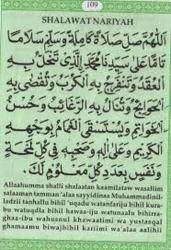 109
SHALAWAT NARIYAH
اَللّٰهُمَّ صَلِّ صَلَاةً كَامِلَةً وَسَلِّمْ سَلَامًا
تَامًّا عَلَى سَيِّدِنَا مُحَمَّدٍ الَّذِى تَنْحَلُّ بِهِ
الْعُقَدُ وَتَنْفَرِجُ بِهِ الْكُرَبُ وَتُقْضَى بِهِ
الْحَوَائِجُ وَتُنَالُ بِهِ الرَّغَائِبُ وَحُسْنُ
الْخَوَاتِمِ وَيُسْتَسْقَى الْغَمَامُ بِوَجْهِهِ
الْكَرِيْمِ وَعَلَى اٰلِهِ وَصَحْبِهِ فِى كُلِّ لَمْحَةٍ
وَنَفَسٍ بِعَدَدِ كُلِّ مَعْلُوْمٍ لَكَ
Allaahumma shalli shalaatan kaamilatan wasallim
salaaman tamman 'alaa sayyidinaa Muhammadinil-
ladzii tanhallu bihil 'uqadu watanfariju bihil kura-
bu watuqdlaa bihil hawaa-iju watunaalu bihirra-
ghaa-ibu wahusnul khawaatimi wa yustasqal
ghamaamu biwajhihil kariimi wa'alaa aalihii